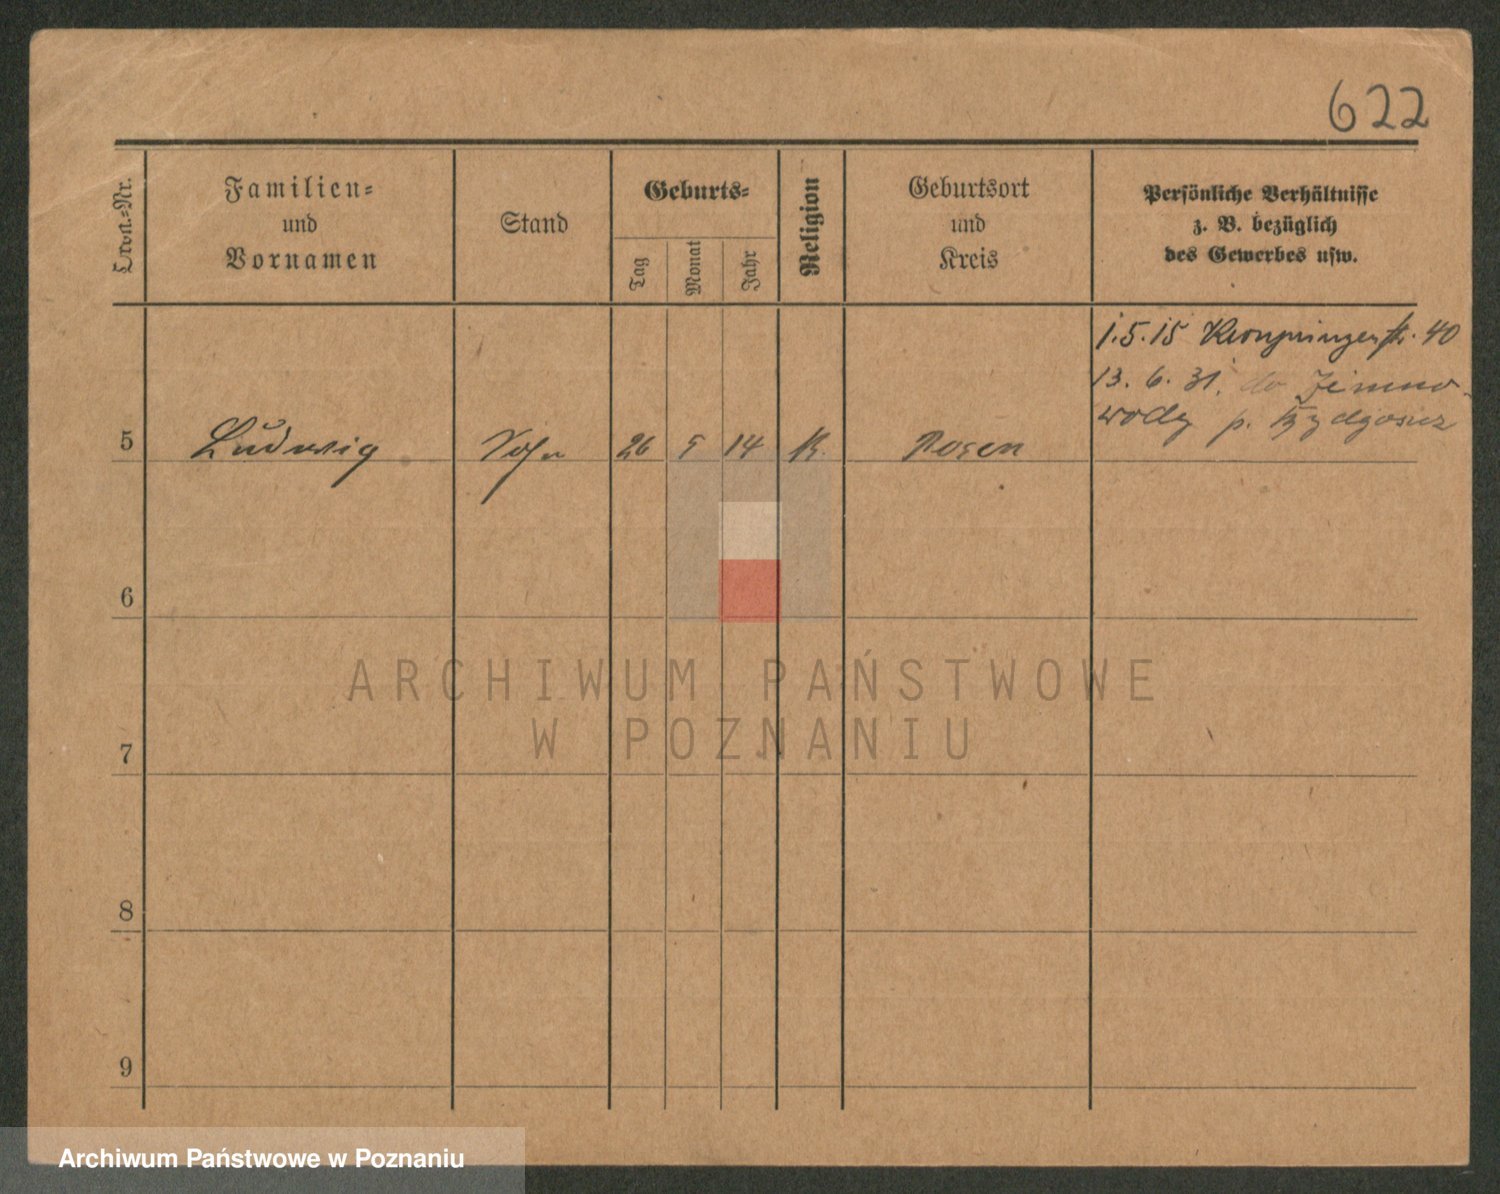 622
Ordn.-Nr.
Familien-
und
Vornamen
Stand
Geburts-
Tag
Monat
Jahr
Religion
Geburtsort
und
Kreis
Persönliche Verhältnisse
z. B. bezüglich
des Gewerbes usw.
1.5.15 Kronprinzenstr. 40
13. 6. 31. do Zimno-
wody p. Bydgoszcz
5 Ludwig Sohn 26 5 14 K. Posen
6
7
8
9
ARCHIWUM PAŃSTWOWE
W POZNANIU
Archiwum Państwowe w Poznaniu